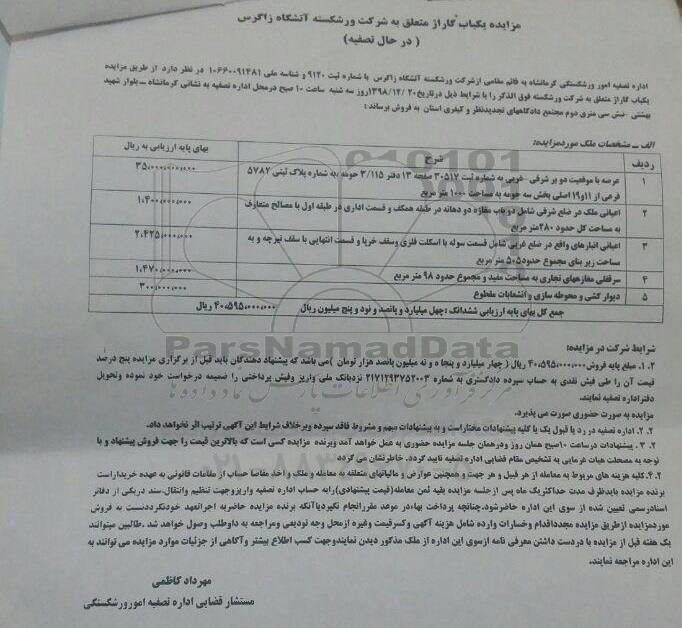 مزایده یکباب گاراژ متعلق به شرکت ورشکسته آتشگاه زاگرس
( در حال تصفیه)
اداره تصفیه امور ورشکستگی کرمانشاه به قائم مقامی ازشرکت ورشکسته آتشگاه زاگرس با شماره ثبت ۹۱۲۰ و شناسه ملی ۱۰۶۶۰۰۹۱۴۸۱ در نظر دارد از طریق مزایده
یکباب گاراژ متعلق به شرکت ورشکسته فوق الذکر را با شرایط ذیل درتاریخ۱۳۹۸/۱۲/۲۰روز سه شنبه ساعت ۱۰ صبح درمحل اداره تصفیه به نشانی کرمانشاه – بلوار شهید
بهشتی –نبش سی متری دوم مجتمع دادگاههای تجدیدنظر و کیفری استان به فروش برساند :
الف – مشخصات ملک موردمزایده:
ردیف شرح بهای پایه ارزیابی به ریال
۱ عرصه با موقعیت دو بر شرقی – غربی به شماره ثبت ۳۰۵۱۷ صفحه ۱۳ دفتر ۳/۱۱۵ حومه ،به شماره پلاک ثبتی ۵۷۸۲ ۳۵،۰۰۰،۰۰۰،۰۰۰
فرعی از ۱۱و۱۹ اصلی بخش سه حومه به مساحت ۱۰۰۰ متر مربع
۲ اعیانی ملک در ضلع شرقی شامل دو باب مغازه دو دهانه در طبقه همکف و قسمت اداری در طبقه اول با مصالح متعارف ۱،۴۰۰،۰۰۰،۰۰۰
به مساحت کل حدود ۲۸۰متر مربع
۳ اعیانی انبارهای واقع در ضلع غربی شامل قسمت سوله با اسکلت فلزی وسقف خرپا و قسمت انتهایی با سقف تیرچه و به ۲،۴۲۵،۰۰۰،۰۰۰
مساحت زیر بنای مجموع حدود۵۰۵ متر مربع
۴ سرقفلی مغازههای تجاری به مساحت مفید و مجموع حدود ۹۸ متر مربع ۱،۴۷۰،۰۰۰،۰۰۰
۵ دیوار کشی و محوطه سازی و انشعابات مقطوع ۳۰۰،۰۰۰،۰۰۰
جمع کل بهای پایه ارزیابی ششدانگ :چهل میلیارد و پانصد و نود و پنج میلیون ریال ۴۰،۵۹۵،۰۰۰،۰۰۰ ریال
ParsNamadData
شرایط شرکت در مزایده:
۱ .۲. مبلغ پایه فروش۴۰،۵۹۵،۰۰۰،۰۰۰ ریال ( چهار میلیارد و پنجا ه و نه میلیون پانصد هزار تومان )می باشد که پیشنهاد دهندگان باید قبل از برگزاری مزایده پنج درصد
قیمت آن را طی فیش نقدی به حساب سپرده دادگستری به شماره ۲۱۷۱۲۹۳۷۵۲۰۰۳ نزدبانک ملی واریز وفیش پرداختی را ضمیمه درخواست خود نموده وتحویل
دفتراداره تصفیه نمایند.
مزایده به صورت حضوری صورت می پذیرد.
۲ .۲. اداره تصفیه در رد یا قبول یک یا کلیه پیشنهادات مختاراست و به پیشنهادات مبهم و مشروط فاقد سپرده وبرخلاف شرایط این آگهی ترتیب اثر نخواهد داد.
۳ .۲. پیشنهادات درساعت ۱۰صبح همان روز ودرهمان جلسه مزایده حضوری به عمل خواهد آمد وبرنده مزایده کسی است که بالاترین قیمت را جهت فروش پیشنهاد و با
توجه به مصلحت هیات غرمایی به تشخیص مقام قضایی اداره تصفیه تایید گردد. خاطرنشان می گردد
۴.۲.کلیه هزینه های مربوط به معامله از هر قبیل و هر جهت و همچنین عوارض و مالیاتهای متعلقه به معامله و ملک و اخذ مفاصا حساب از مقامات قانونی به عهده خریداراست
برنده مزایده بایدظرف مدت حداکثریک ماه پس ازجلسه مزایده بقیه ثمن معامله(قیمت پیشنهادی)رابه حساب اداره تصفیه واریزوجهت تنظیم وانتقال.سند دریکی از دفاتر
اسنادرسمی تعیین شده از سوی این اداره حاضرشود.چنانچه پرداخت بهاءدر موعد مقررانجام نگیردیاآنکه برنده مزایده حاضربه اجراتعهد خودنگرددنسبت به فروش
موردمزایده ازطریق مزایده مجدداقدام وخسارات وارده شامل هزینه آگهی وکسرقیمت وغیره ازمحل وجه تودیعی ومراجعه به داوطلب وصول خواهد شد .طالبین میتوانند
یک هفته قبل از مزایده با دردست داشتن معرفی نامه ازسوی این اداره از ملک مذکور دیدن نمایندوجهت کسب اطلاع بیشتر وآگاهی از جزئیات موارد مزایده می توانند به
این اداره مراجعه نمایند.
مهرداد کاظمی
مستشار قضایی اداره تصفیه امورورشکستگی